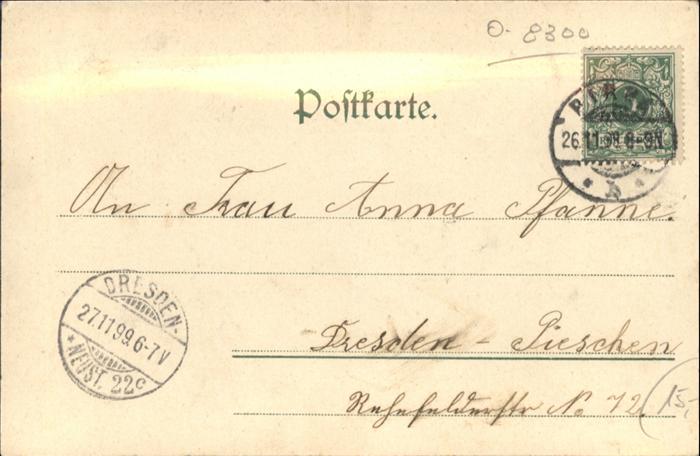 O-8300
Postkarte.
PIRNA
26.11.99.8-9N.
* b *
An Frau Anna Pfanne.
DRESDEN-
27.11.99.6-7V
*NEUST. 22c
Dresden - Pieschen
Rehefelderstr No 72.
15,-